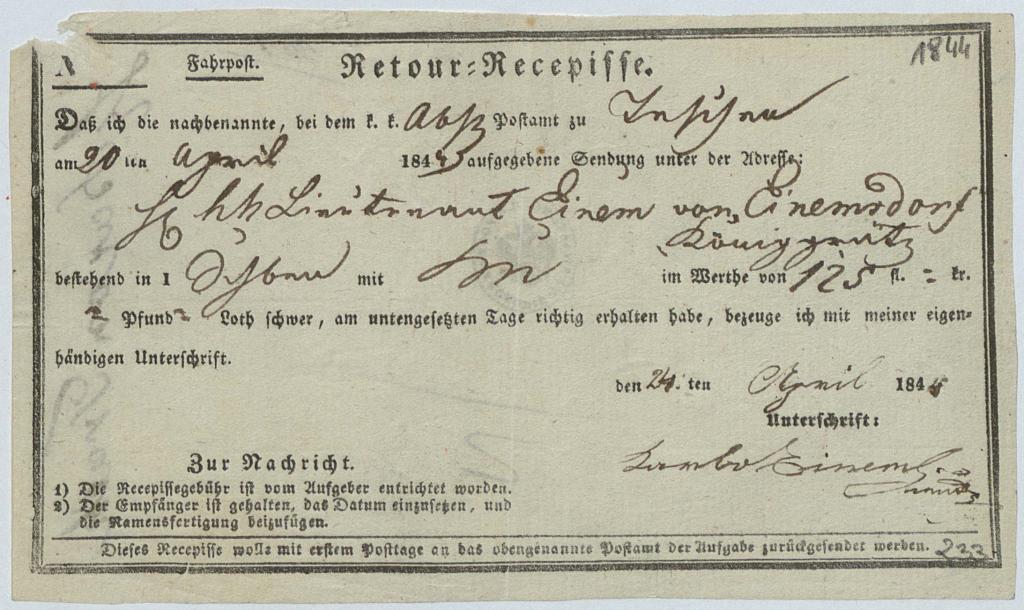 1844
N Fahrpost. Retour-Recepisse.
Daß ich die nachbenannte, bei dem k. k. Abs Postamt zu Teschen
am 20 ten April 1845 aufgegebene Sendung unter der Adresse:
kk Lieutenant Einem von Einemsdorf
Königgrätz
bestehend in 1 mit im Werthe von 125 fl. - kr.
- Pfund - Loth schwer, am untengesetzten Tage richtig erhalten habe, bezeuge ich mit meiner eigen-
händigen Unterschrift.
den 24. ten April 1845
Unterschrift:
Einem
Zur Nachricht.
1) Die Recepissegebühr ist vom Aufgeber entrichtet worden.
2) Der Empfänger ist gehalten, das Datum einzusetzen, und
die Namensfertigung beizufügen.
Dieses Recepisse wolle mit erstem Posttage an das obengenannte Postamt der Aufgabe zurückgesendet werden. 233